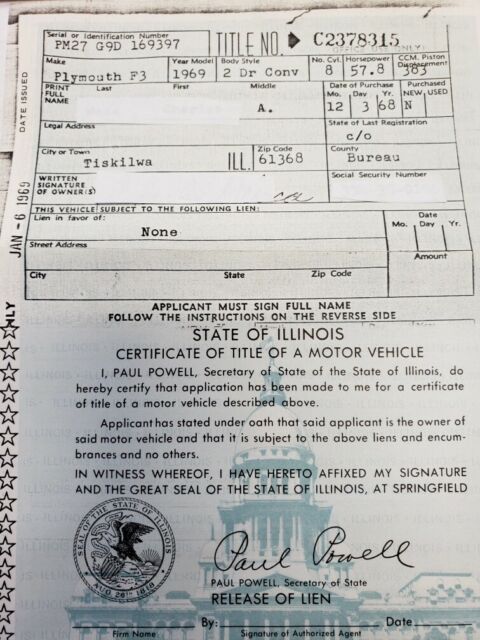 Serial or Identification Number
PM27 G9D 169397
TITLE NO. C2378315
OFFICE USE ONLY)
Make Year Model Body Style No. Cyl. Horsepower CCM. Piston Displacement
Plymouth F3 1969 2 Dr Conv 8 57.8 383
PRINT FULL NAME Last First Middle Date of Purchase Purchased
Mo. Day Yr. NEW USED
A. 12 3 68 N
Legal Address State of Last Registration
c/o
City or Town Zip Code County
Tiskilwa ILL. 61368 Bureau
WRITTEN SIGNATURE OF OWNER(S) Social Security Number
THIS VEHICLE SUBJECT TO THE FOLLOWING LIEN:
Lien in favor of: Date
None Mo. Day Yr.
Street Address Amount
City State Zip Code
DATE ISSUED
JAN -6 1969
NLY
APPLICANT MUST SIGN FULL NAME
FOLLOW THE INSTRUCTIONS ON THE REVERSE SIDE
STATE OF ILLINOIS
CERTIFICATE OF TITLE OF A MOTOR VEHICLE
I, PAUL POWELL, Secretary of State of the State of Illinois, do
hereby certify that application has been made to me for a certificate
of title of a motor vehicle described above.
Applicant has stated under oath that said applicant is the owner of
said motor vehicle and that it is subject to the above liens and encum-
brances and no others.
IN WITNESS WHEREOF, I HAVE HERETO AFFIXED MY SIGNATURE
AND THE GREAT SEAL OF THE STATE OF ILLINOIS, AT SPRINGFIELD
SEAL OF THE STATE OF ILLINOIS
AUG. 26TH 1818
Paul Powell
PAUL POWELL, Secretary of State
RELEASE OF LIEN
By: Date
Firm Name Signature of Authorized Agent